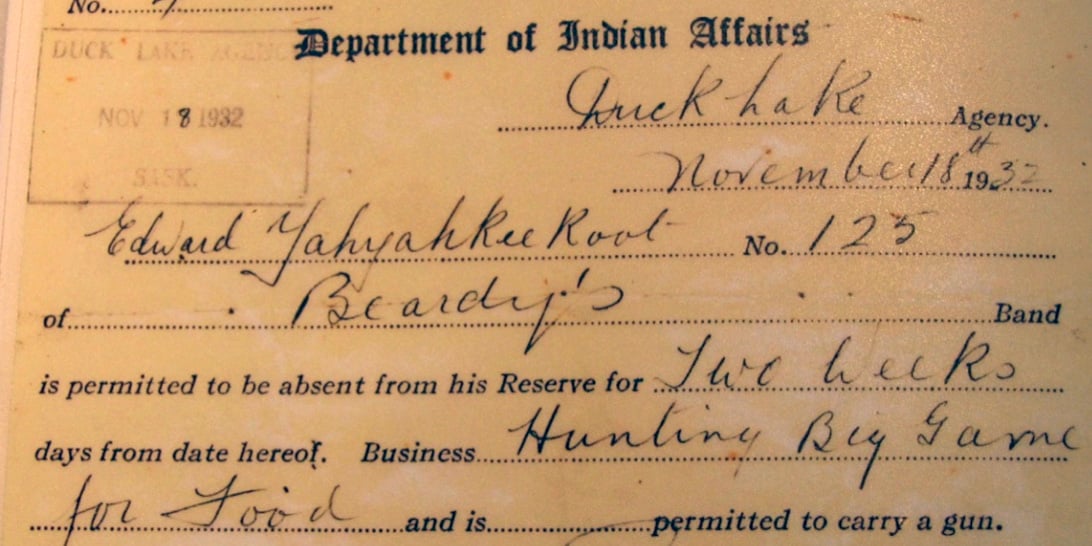 No.
DUCK LAKE AGENC
Department of Indian Affairs
Duck Lake Agency.
NOV 18 1932
November 18th 1932
SASK.
Edward Yahyahkee Koot No. 125
of Beardy's Band
is permitted to be absent from his Reserve for Two Weeks
days from date hereof. Business Hunting Big Game
for Food and is permitted to carry a gun.